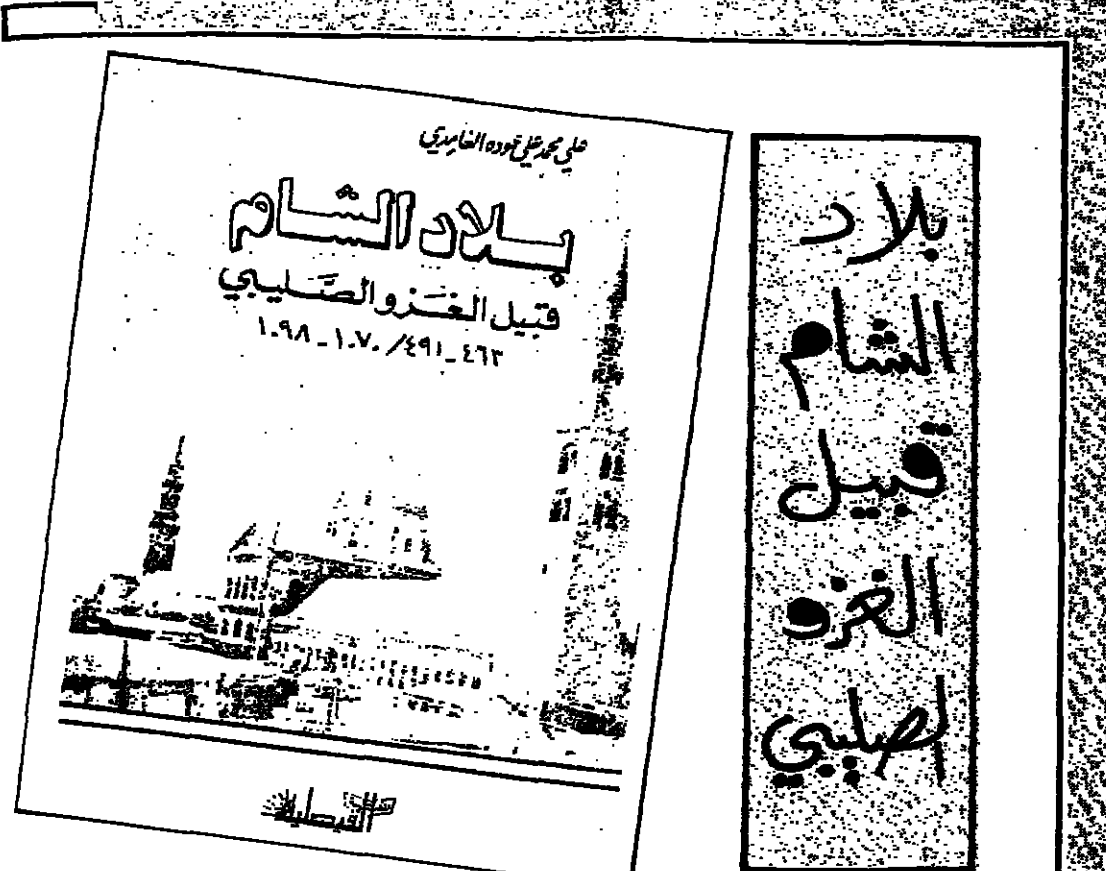 بلاد
الشام
قبيل
الغزو
الصليبي
علي محمد علي عوده الغامدي
بلاد الشام
قبيل الغزو الصليبي
٤٦٣_٤٩١/ ١٠٧٠_١٠٩٨
الفيصلية